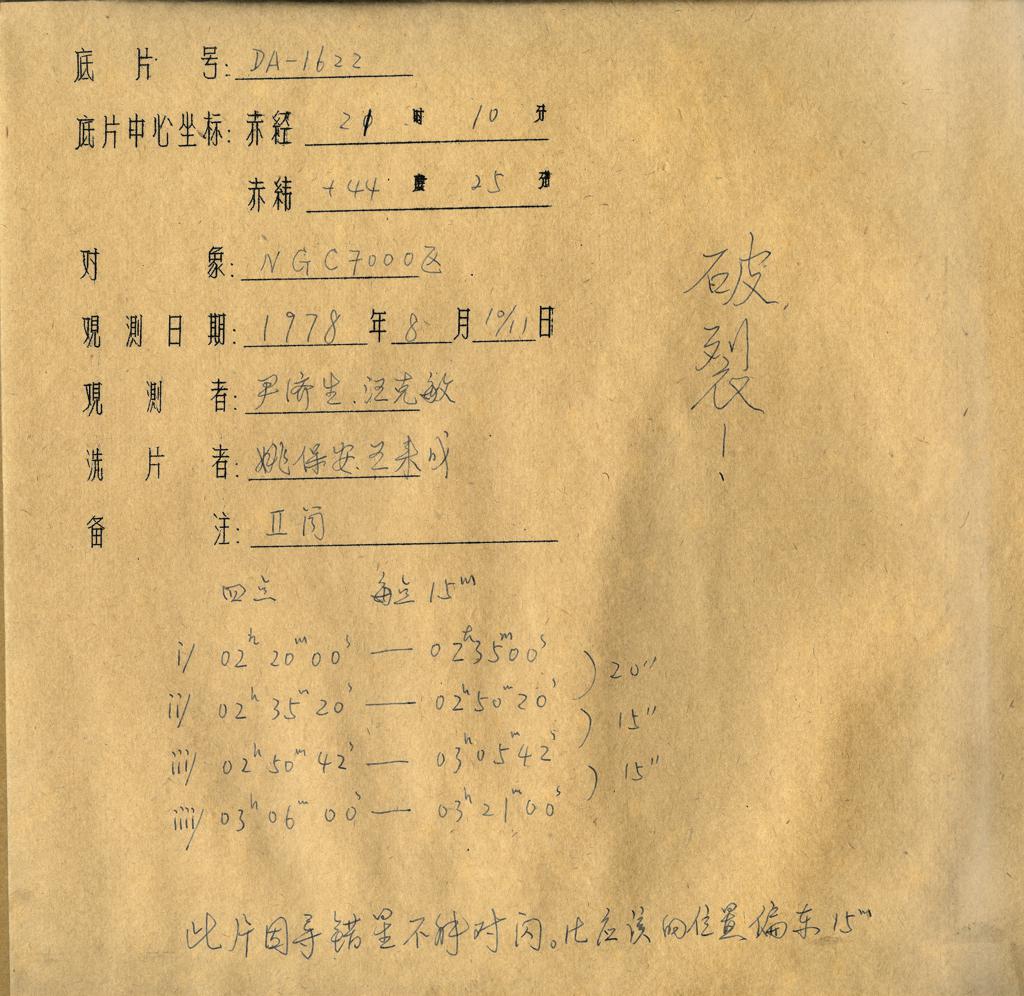 底片号: DA-1622
底片中心坐标: 赤経 21 时 10 分
赤緯 +44 度 25 分
对象: NGC7000区
观测日期: 1978 年 8 月 10/11 日
观测者: 尹济生、汪克敏
洗片者: 姚保安、王来成
备注: II闪
破裂!
四点 每点 15ᵐ
i/ 02ʰ 20ᵐ 00ˢ — 02ʰ 35ᵐ 00ˢ
20″
ii/ 02ʰ 35ᵐ 20ˢ — 02ʰ 50ᵐ 20ˢ
15″
iii/ 02ʰ 50ᵐ 42ˢ — 03ʰ 05ᵐ 42ˢ
15″
iiii/ 03ʰ 06ᵐ 00ˢ — 03ʰ 21ᵐ 00ˢ
此片因导错星不能对闪。比应该的位置偏东 15ᵐ